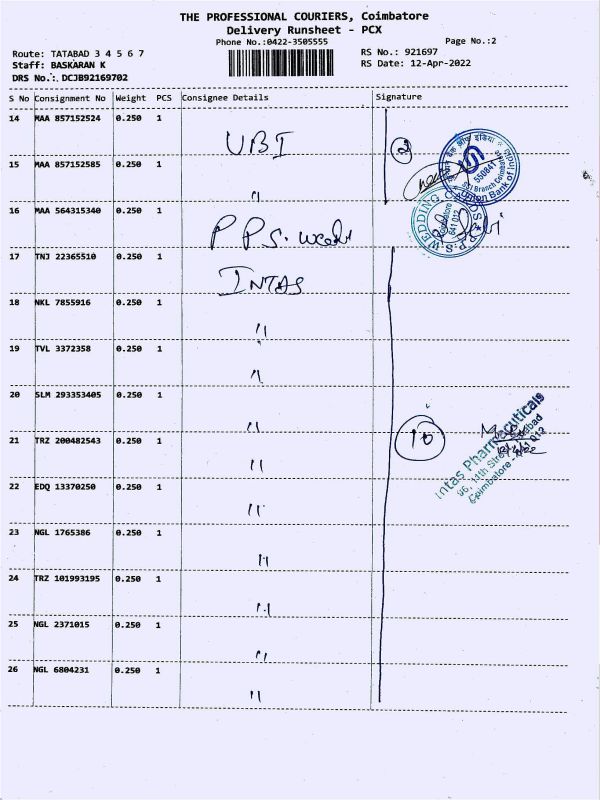 THE PROFESSIONAL COURIERS, Coimbatore
Delivery Runsheet - PCX
Phone No.:0422-3505555
Page No.:2
Route: TATABAD 3 4 5 6 7
RS No.: 921697
Staff: BASKARAN K
RS Date: 12-Apr-2022
DRS No.: DCJB92169702
S No Consignment No Weight PCS Consignee Details Signature
14 MAA 857152524 0.250 1 UBI
2
15 MAA 857152585 0.250 1 "
भारत
Union Bank of India
550841
Branch Coimbatore
16 MAA 564315340 0.250 1 PPS. wedd
P.P.S. WEDDING CARDS
Coimbatore
641 012
17 TNJ 22365510 0.250 1 INTAS
18 NKL 7855916 0.250 1 "
19 TVL 3372358 0.250 1 "
20 SLM 293353405 0.250 1 "
21 TRZ 200482543 0.250 1 "
10
Intas Pharmaceuticals
96, 11th Street
Coimbatore - 641 012
22 EDQ 13370250 0.250 1 "
23 NGL 1765386 0.250 1 "
24 TRZ 101993195 0.250 1 "
25 NGL 2371015 0.250 1 "
26 NGL 6804231 0.250 1 "